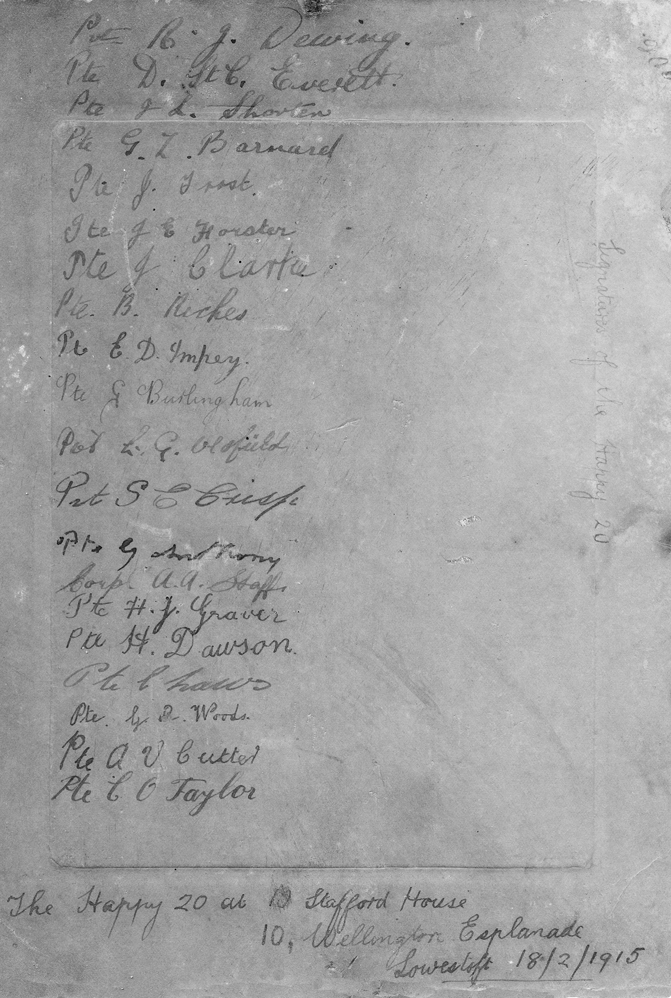 Pvt R. J. Dewing.
Pte D. St C. Everett.
Pte J L. Shorten
Pte G. Z. Barnard
Pte J. Frost.
Pte J E Forster
Pte J Clarke
Pte. B. Riches
Pt E. D. Impey.
Pte G Burlingham
Pvt L. G. Olofield
Pvt S E Crisp
Pte G Anthony
Corp. A. A. Staff.
Pte H. J. Graver
Pte H. Dawson.
Pte C haws
Pte. G R. Woods.
Pte A V Cutter
Pte C O Taylor
Signatures of the Happy 20
The Happy 20 at Stafford House
10, Wellington Esplanade
Lowestoft 18/2/1915